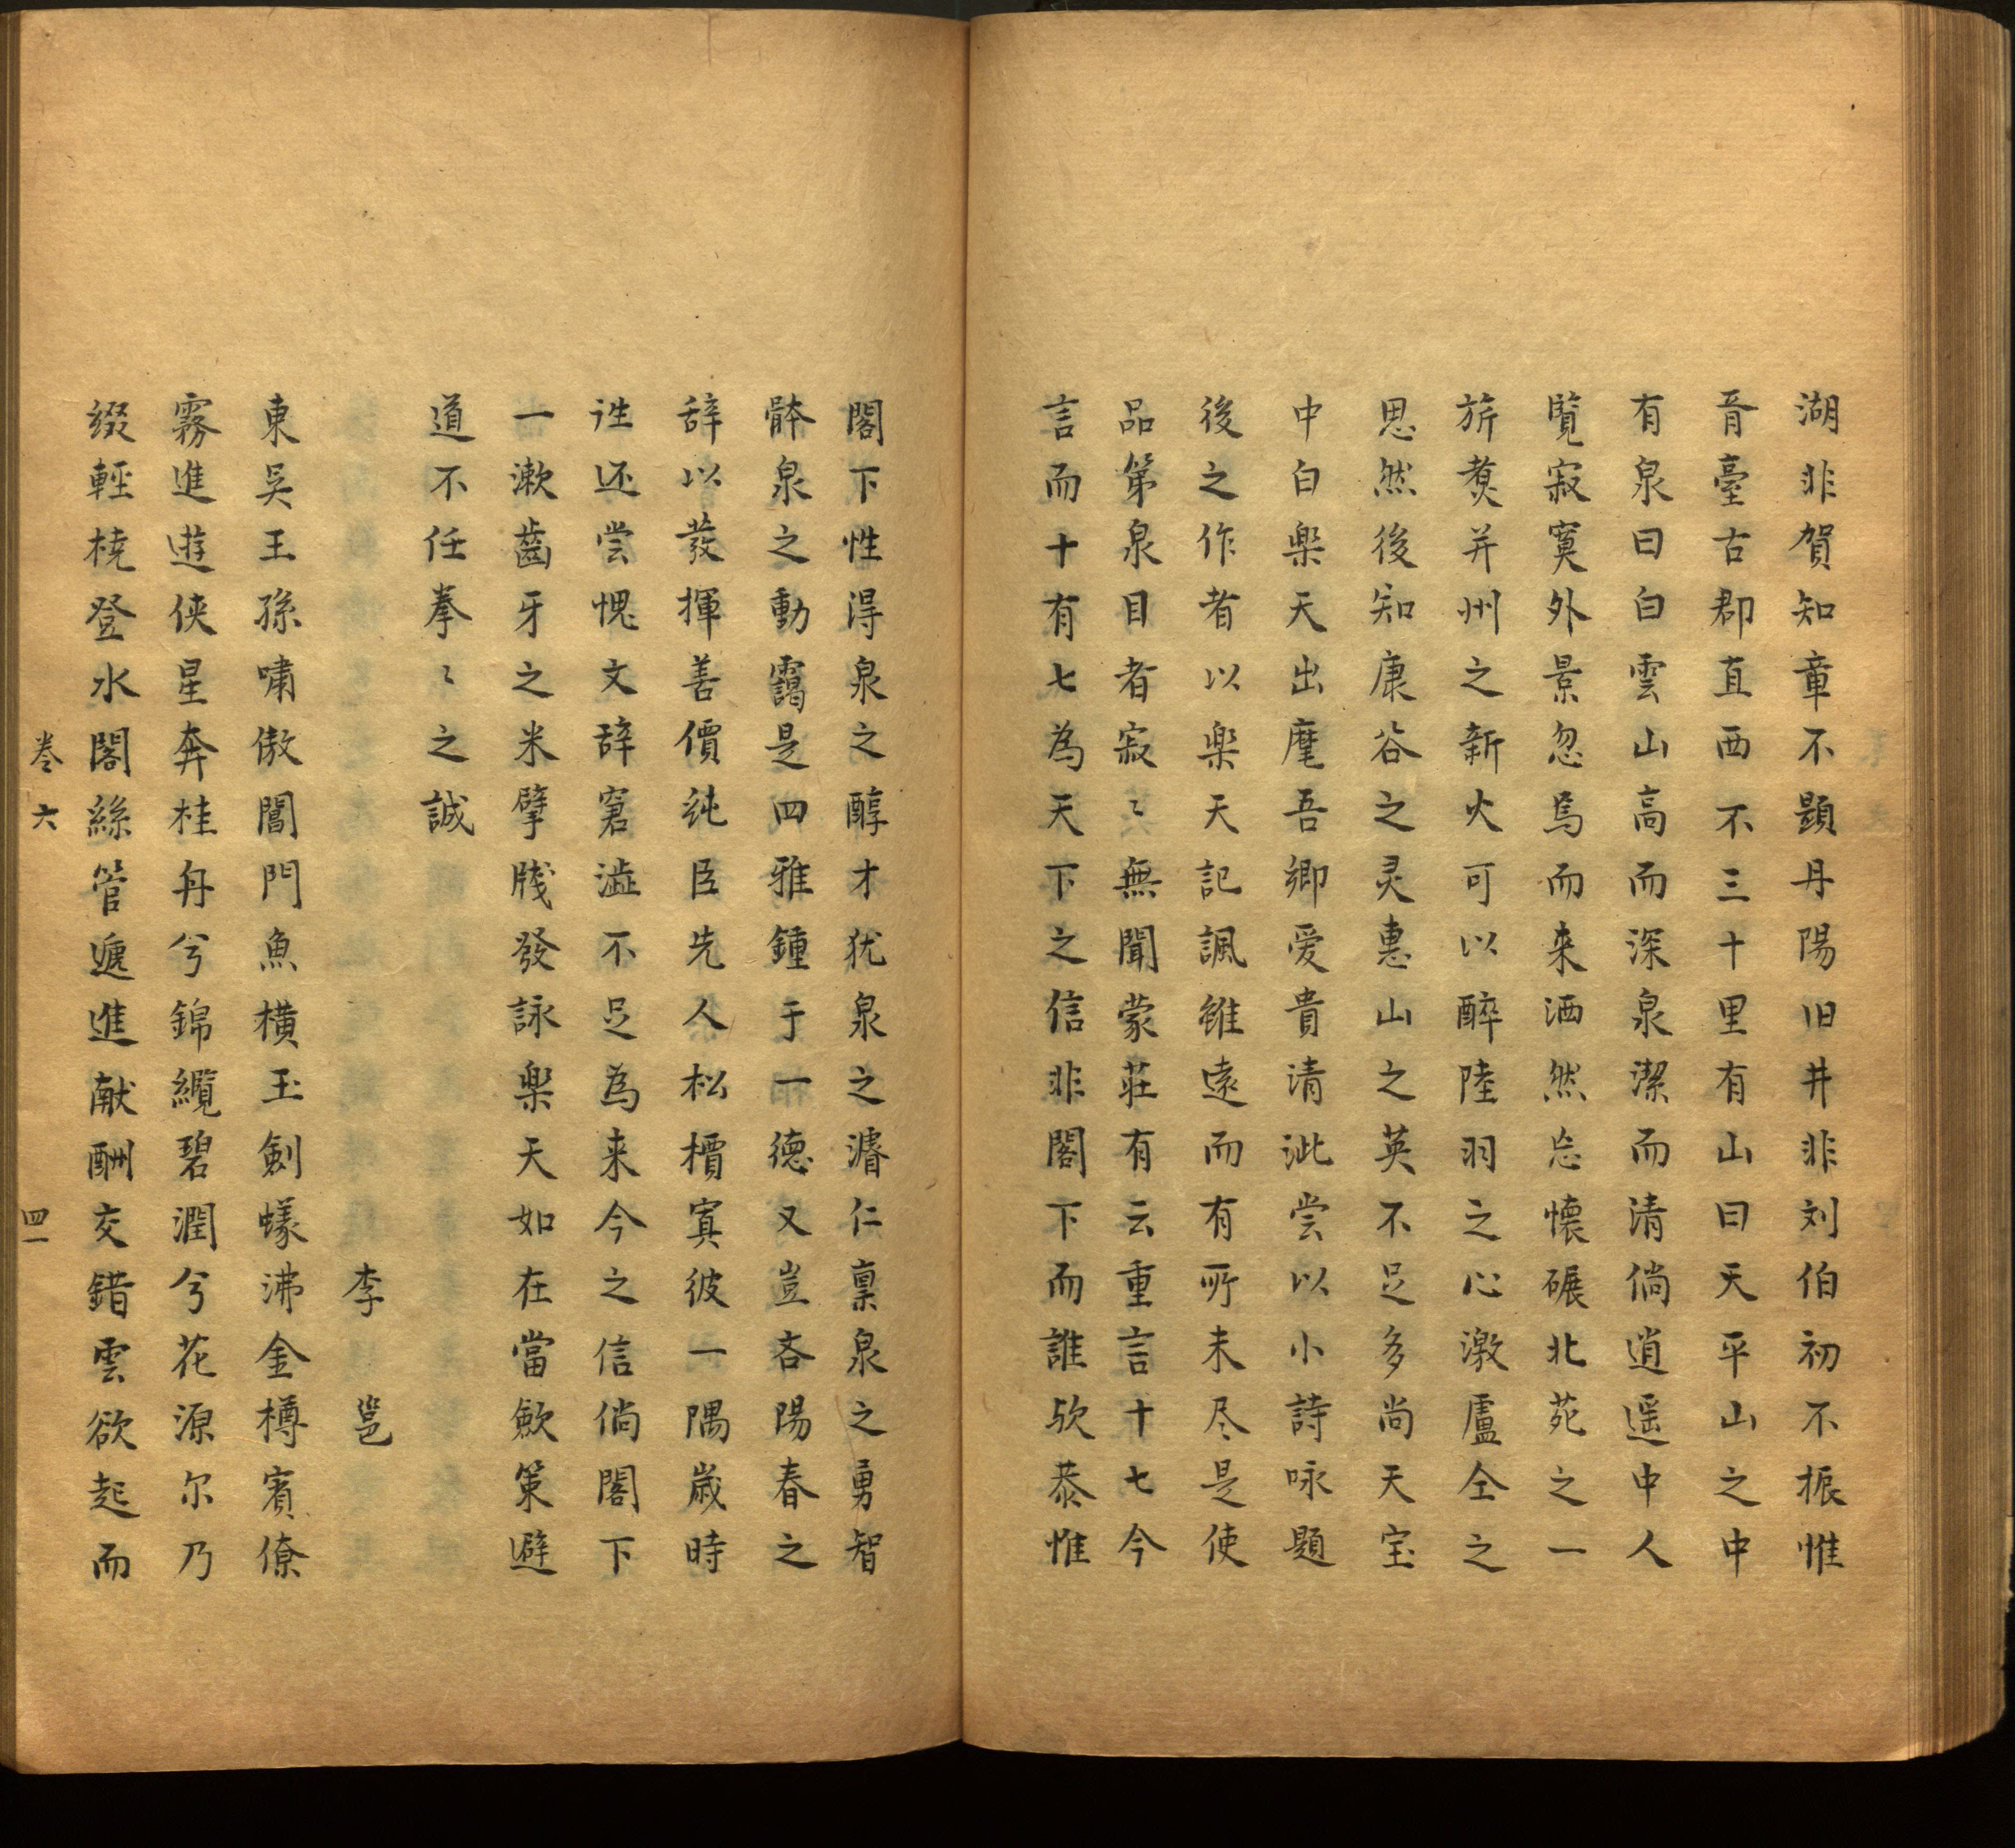 湖非賀知章不顕丹陽旧井非刘伯初不振惟
胥臺古郡直西不三十里有山曰天平山之中
有泉曰白雲山高而深泉潔而清倘逍遥中人
覧寂寞外景忽焉而来洒然忘懷碾北苑之一
旂煑并州之新火可以醉陸羽之心激盧仝之
思然後知康谷之灵惠山之英不足多尚天宝
中白楽天出麾吾郷爱貴清泚尝以小詩咏題
後之作者以楽天記諷雖遠而有所未尽是使
品第泉目者寂〻無聞蒙莊有云重言十七今
言而十有七為天下之信非閣下而誰欤恭惟
閣下性淂泉之醇才犹泉之濬仁禀泉之勇智
骵泉之動靄是四雅鍾于一德又豈吝陽春之
辞以發揮善價純臣先人松檟寘彼一隅歳時
往还尝愧文辞窘澁不足為来今之信倘閣下
一漱齒牙之米擘牋發詠楽天如在當歛策避
道不任拳〻之誠
李邕
東吴王孫嘯傲閶門魚横玉劍蟻沸金樽賓僚
霧進遊侠星奔桂舟兮錦纜碧潤兮花源尔乃
綴輕橈登水閣絲管遞進献酬交錯雲欲起而
巻六
四一